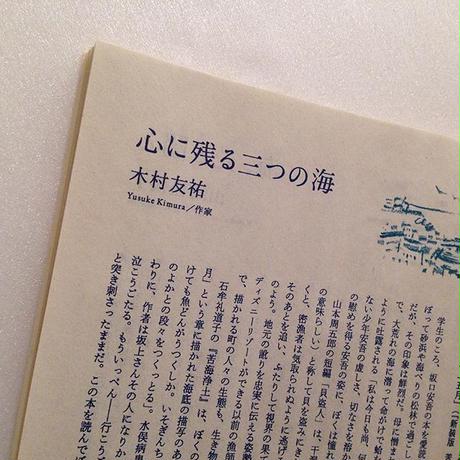 心に残る三つの海
木村友祐
Yusuke Kimura／作家
学生のころ、坂口安吾の本を愛読
ぼって砂浜や海べりの松林で過ごし
だが、その印象は鮮烈だ。母に憎ま
て、大荒れの海に潜って命がけで蛤を
ように吐露される「私は今日も尚、何
ない少年安吾の虚しさ、切なさを
の慰めを得る安吾の姿に、ぼくは憧れ
山本周五郎の短編「貝盗人」は、干潟
の意味らしい）と称して貝を盗みにき
くと、密漁者は気取られぬように逃げ
そのあとを追い、ふたりして視界の果て
のよう。地元の訛りを忠実に伝える
ディズニーリゾートができる以前の漁師
で、描かれる町の人々の生態も、生き物
石牟礼道子の『苦海浄土』は、ぼくの
月」という章で描かれた海底の描写のあ
けても魚どんがうつくしか。いそぎんち
のよかとの段々をつくっとる」。水俣病
わりに、作者は坂上さんその人になりか
泣こうごたる。もういっぺん――行こうご
と突き刺さったままだ。この本を読んでぼ